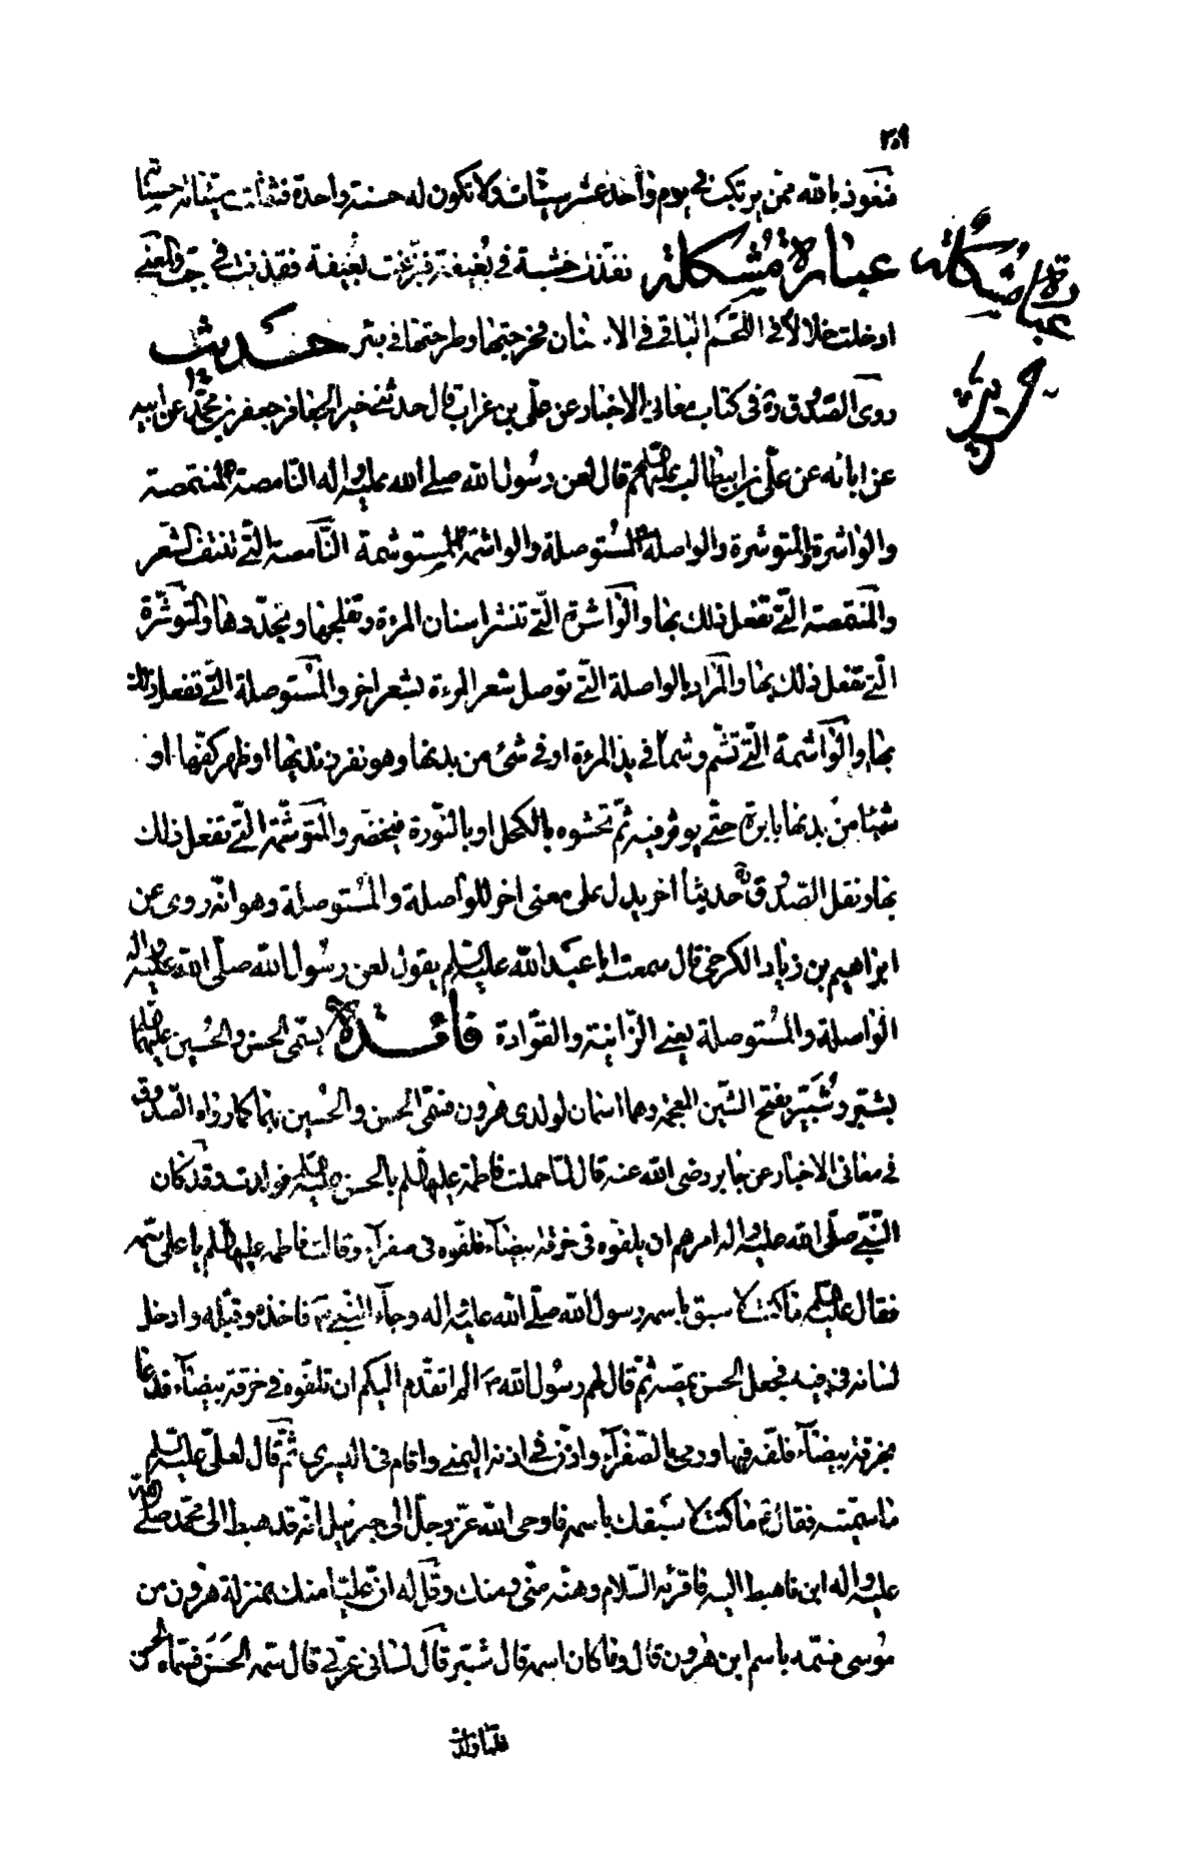 ٢٠٩
فنعوذ بالله ممن يرتكب في يوم واحد عشر سيئات ولا تكون له حسنة واحدة فتغلب سيئاته حسناته
عبارة مشكلة نفذت خشبة في بغيفة فنزغت بغيفة فقذفت في جب والمعنى
ادخلت خلالا في اللحم الباقي في الاسنان فخرجتها وطرحتها في بئر حديث
روى الصدوق ره في كتاب معاني الاخبار عن علي بن غراب قال حدثني خير الجعافر جعفر بن محمد عن ابيه
عن ابائه عن علي بن ابيطالب عليهم السلام قال لعن رسول الله صلى الله عليه واله النامصة والمنتمصة
والواشرة والمتوشرة والواصلة والمستوصلة والواشمة والمستوشمة النامصة التي تنتف الشعر
والمنتمصة التي تفعل ذلك بها والواشرة التي تنشر اسنان المرءة وتفلجها وتحددها والمتوشرة
التي تفعل ذلك بها والمراد بالواصلة التي توصل شعر المرءة بشعر اخر والمستوصلة التي تفعل ذلك
بها والواشمة التي تشم وشما في يد المرءة او في شئ من بدنها وهو تغرز يديها او ظهر كفها او
شيئا من بدنها بابرة حتى يوثر فيه ثم تحشوه بالكحل او بالنورة فيخضر والمتوشمة التي تفعل ذلك
بها ونقل الصدوق ره حديثا اخر يدل على معنى اخر للواصلة والمستوصلة وهو انه روى عن
ابراهيم بن زياد الكرخي قال سمعت ابا عبد الله عليه السلم يقول لعن رسول الله صلى الله عليه واله
الواصلة والمستوصلة يعني الزانية والقوادة فائدة يسمى الحسن والحسين عليهما السلم
بشبر وشبير بفتح الشين المعجمة وهما اسمان لولدى هرون فسمى الحسن والحسين بهما كما رواه الصدوق
في معاني الاخبار عن جابر رضى الله عنه قال لما حملت فاطمة عليها السلم بالحسن عليه السلم فولدت وقد كان
النبي صلى الله عليه واله امرهم ان يلفوه في خرقة بيضاء فلفوه في صفراء وقالت فاطمة عليها السلم يا علي سمه
فقال عليه السلم ما كنت لاسبق باسمه رسول الله صلى الله عليه واله وجاء النبي ص فاخذه وقبله وادخل
لسانه في فيه فجعل الحسن يمصه ثم قال لهم رسول الله ص الم اتقدم اليكم ان تلفوه في خرقة بيضاء فدعا
بخرقة بيضاء فلفه فيها ورمى بالصفراء واذن في اذنه اليمنى واقام في اليسرى ثم قال لعلي عليه السلم
ما سميته فقال ع ما كنت لاسبقك باسمه فاوحى الله عز وجل الى جبرئيل انه قد هبط الى محمد صلى الله
عليه واله ابن فاهبط اليه فاقرئه السلام وهنه مني ومنك وقل له ان عليا منك بمنزلة هرون من
موسى فسمه باسم ابن هرون قال وما كان اسمه قال شبر قال لساني عربي قال سمه الحسن فسماه الحسن
فلما ولدت
عبارة مشكلة